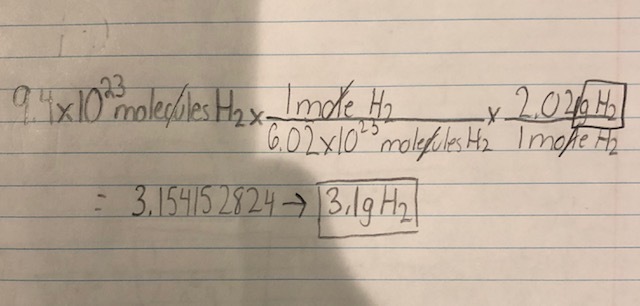 9.4x10^23 molecules H2 x 1 mole H2 / 6.02x10^23 molecules H2 x 2.02g H2 / 1 mole H2
= 3.154152824 → 3.1g H2